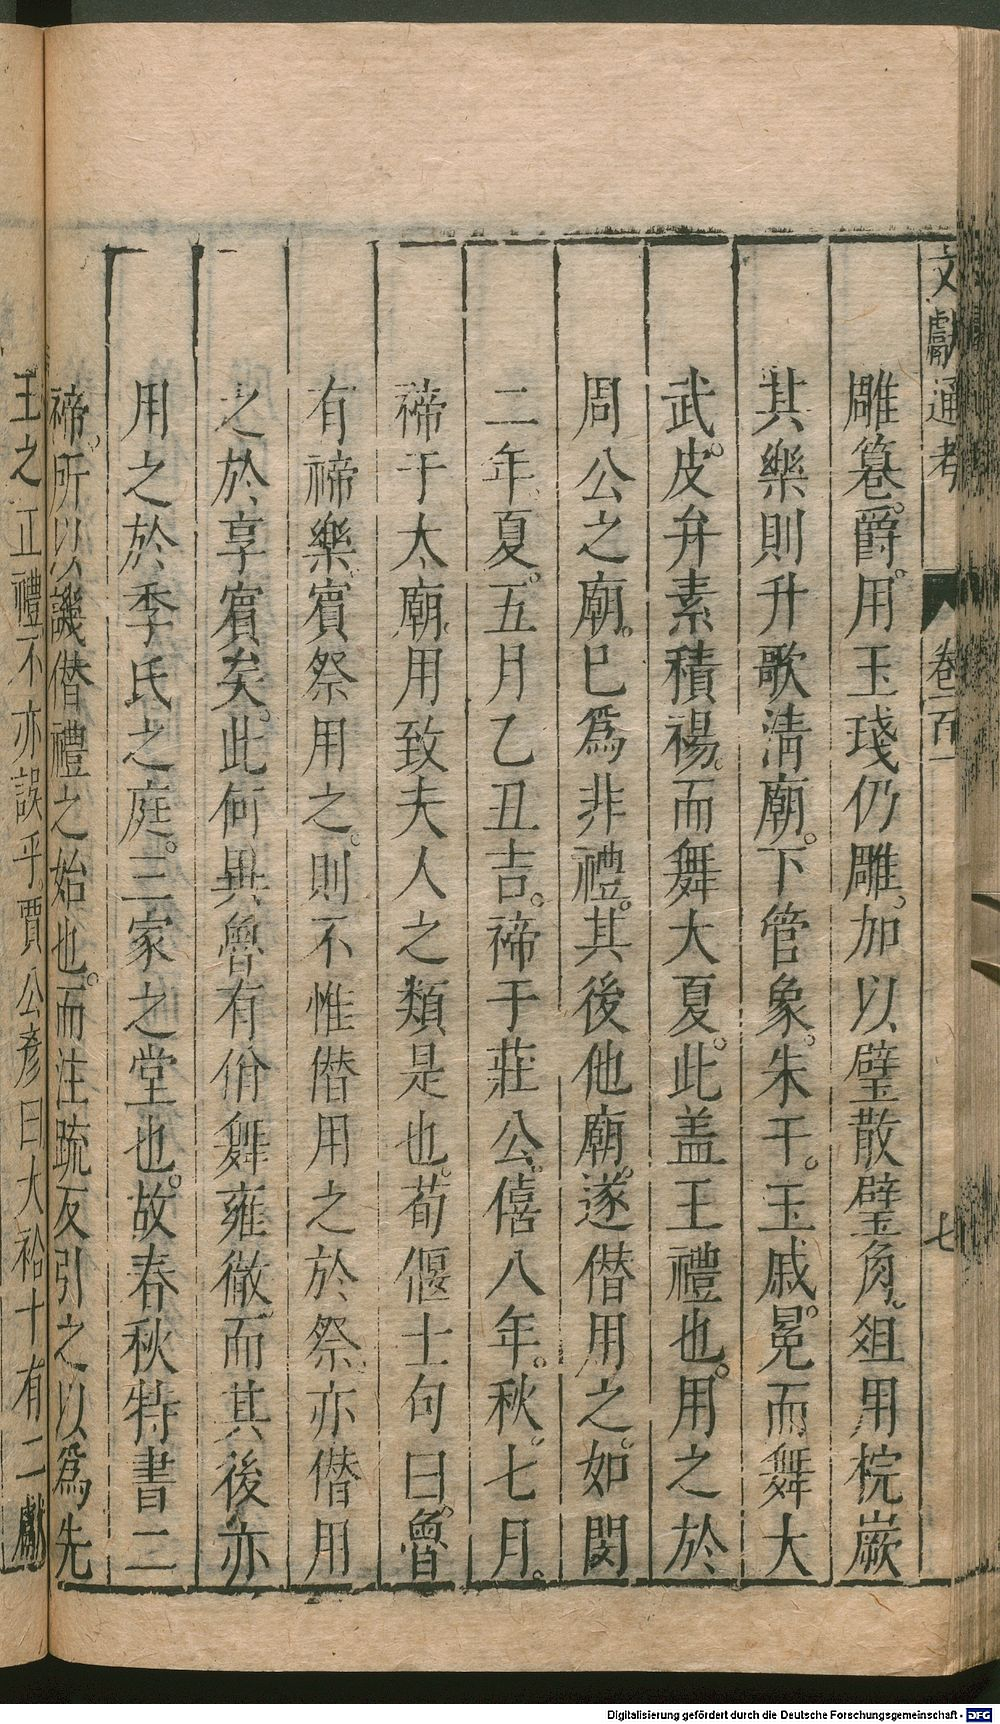 文獻通考 卷一百一 七
雕篹爵用玉琖仍雕加以璧散璧角俎用梡嶡
其樂則升歌清廟下管象朱干玉戚冕而舞大
武皮弁素積裼而舞大夏此盖王禮也用之於
周公之廟已爲非禮其後他廟遂僣用之如閔
二年夏五月乙丑吉禘于莊公僖八年秋七月
禘于太廟用致夫人之類是也荀偃士匄曰魯
有禘樂賓祭用之則不惟僣用之於祭亦僣用
之於享賓矣此何異魯有佾舞雍徹而其後亦
用之於季氏之庭三家之堂也故春秋特書二
禘所以譏僣禮之始也而注疏反引之以爲先
王之正禮不亦誤乎賈公彥曰大祫十有二獻
Digitalisierung gefördert durch die Deutsche Forschungsgemeinschaft - DFG